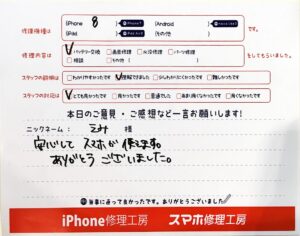 修理機種は iPhone 8 (Android )
iPad (その他 ) です。
修理内容は ☑バッテリー交換 □画面修理 □水没修理 □パーツ修理
□相談 □その他( ) をしてもらいました。
スタッフの説明は □わかりやすかったです ☑理解できました □少しわかりにくかったです □難しかったです
スタッフの対応は ☑とても良かったです □良かったです □普通でした □あまり良くなかったです □良くなかったです
本日のご意見・ご感想など一言お願いします!
ニックネーム: えみ 様
安心して スマホが 使えます。
ありがとう ございました。
無事に直って良かったです。ありがとうございました
iPhone修理工房 スマホ修理工房